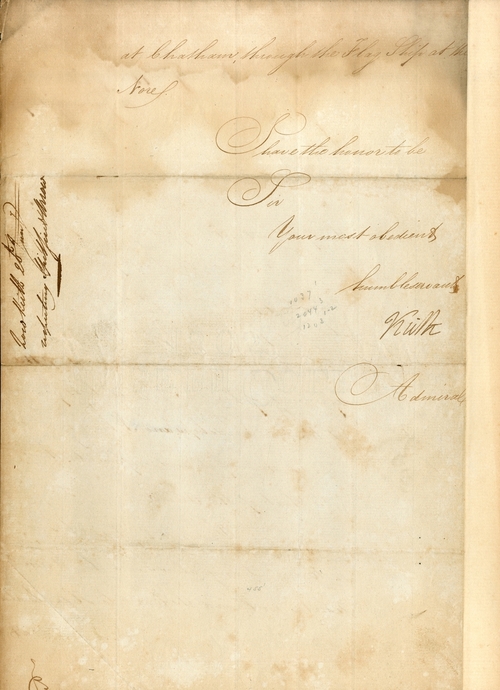 at Chatham, through the Flag Ship at the
Nore
I have the honor to be
Sir
Your most obedient
humble servant
Keith
Admiral
Lord Keith 26
respecting
1027
2044